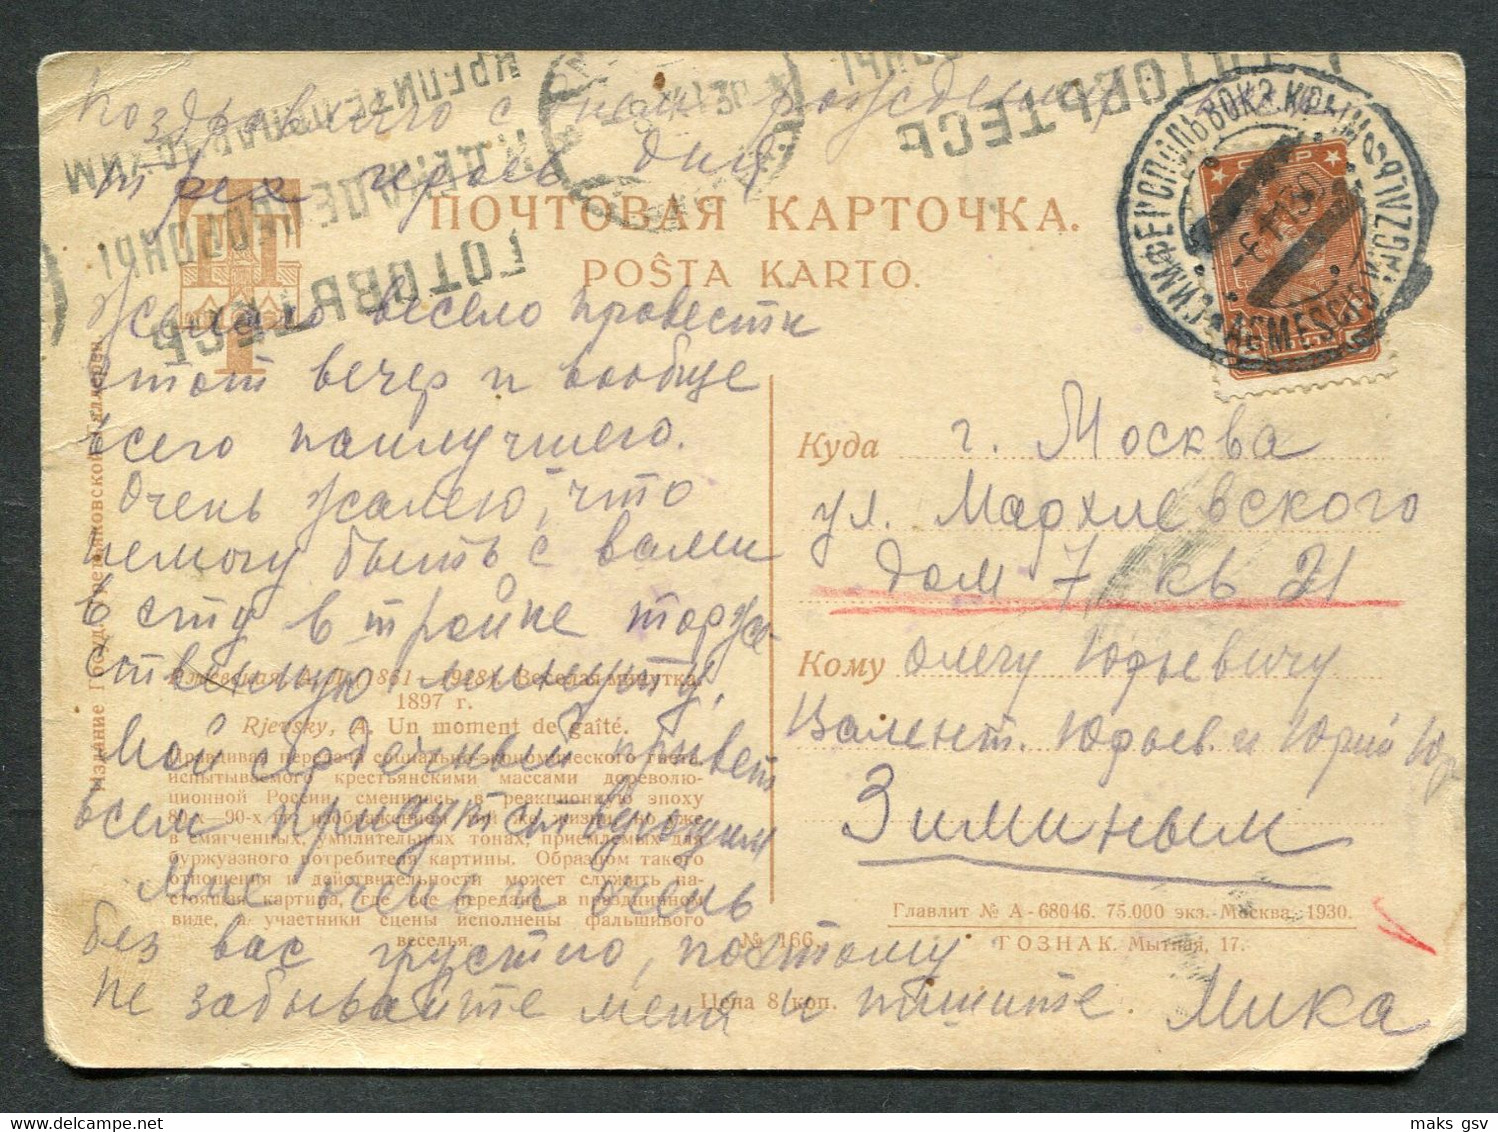 Поздравляю с днем рождения
трех героев дня
ПОЧТОВАЯ КАРТОЧКА.
POŜTA KARTO.
Желаю весело провести
этот вечер и вообще
всего наилучшего.
Очень жалею, что
немогу быть с вами
в эту в тройне торже
ственную минуту.
Мой сердечный привет
всем
Мне очень и очень
без вас грустно, поэтому
не забывайте меня и пишите. Мика
ГОТОВЬТЕСЬ
К ДЕКАДЕ ОБОРОНЫ
КРЕПИТЕ
ГОТОВЬТЕСЬ
СИМФЕРОПОЛЬ ВОКЗ. КРЫМ
-6.11.30
Куда г. Москва
ул. Мархлевского
дом 7 кв 21
Кому Олегу Юрьевичу
Валент. Юрьев. и Юрий Юр
Зиминым
Издание Госуд. Третьяковской Галлереи
Ржевская, А. Л. (1861 - 1928). Веселая минутка.
1897 г.
Rjevsky, A. Un moment de gaîté.
Правдивая передача социально-экономического гнета,
испытываемого крестьянскими массами дореволю-
ционной России, сменилась в реакционную эпоху
80-х—90-х гг. изображением той же жизни, но уже
в смягченных, умилительных тонах, приемлемых для
буржуазного потребителя картины. Образцом такого
отношения к действительности может служить на-
стоящая картина, где все передано в праздничном
виде, а участники сцены исполнены фальшивого
веселья.
№ 166.
Цена 8 коп.
Главлит № А-68046. 75.000 экз. Москва, 1930.
ГОЗНАК. Мытная, 17.
maks gsv